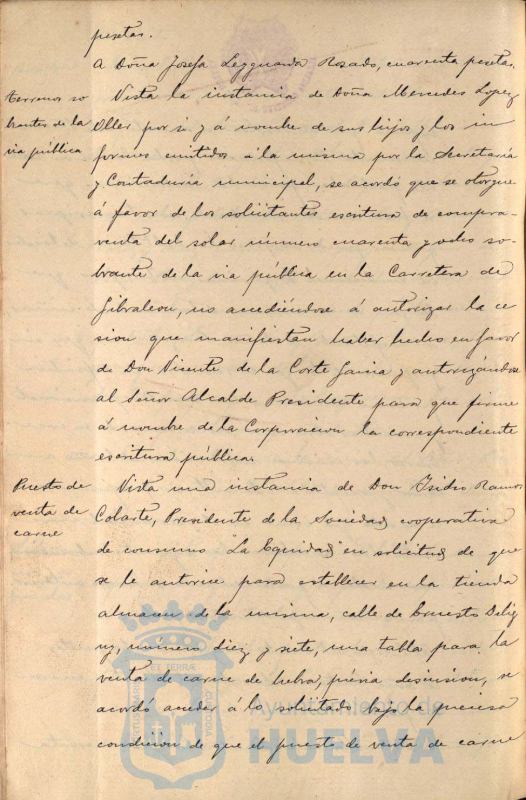 pesetas.
A Doña Josefa Legguarda Rosado, cuarenta pesetas.
Terrenos so
brantes de la
via pública
Vista la instancia de Doña Mercedes Lopez
Oller por si y á nombre de sus hijos y los in
formes emitidos á la misma por la Secretaría
y Contaduría municipal, se acordó que se otorgue
á favor de los solicitantes escritura de compra-
venta del solar número cuarenta y ocho so-
brante de la via pública en la Carretera de
Gibraleon, no accediéndose á autorizar la ce
sion que manifiestan haber hecho en favor
de Don Vicente de la Corte y autorizándose
al Señor Alcalde Presidente para que firme
á nombre de la Corporacion la correspondiente
escritura pública.
Puesto de
venta de
carne
Vista una instancia de Don Isidro Ramos
Cobarte, Presidente de la Sociedad cooperativa
de consumo "La Equidad" en solicitud de que
se le autorice para establecer en la tienda
almacen de la misma, calle de Ernesto Delig
ny, número diez y siete, una tabla para la
venta de carne de hebra, prévia discusion, se
acordó acceder á lo solicitado bajo la precisa
condicion de que el puesto de venta de carne
Ayuntamiento de
HUELVA